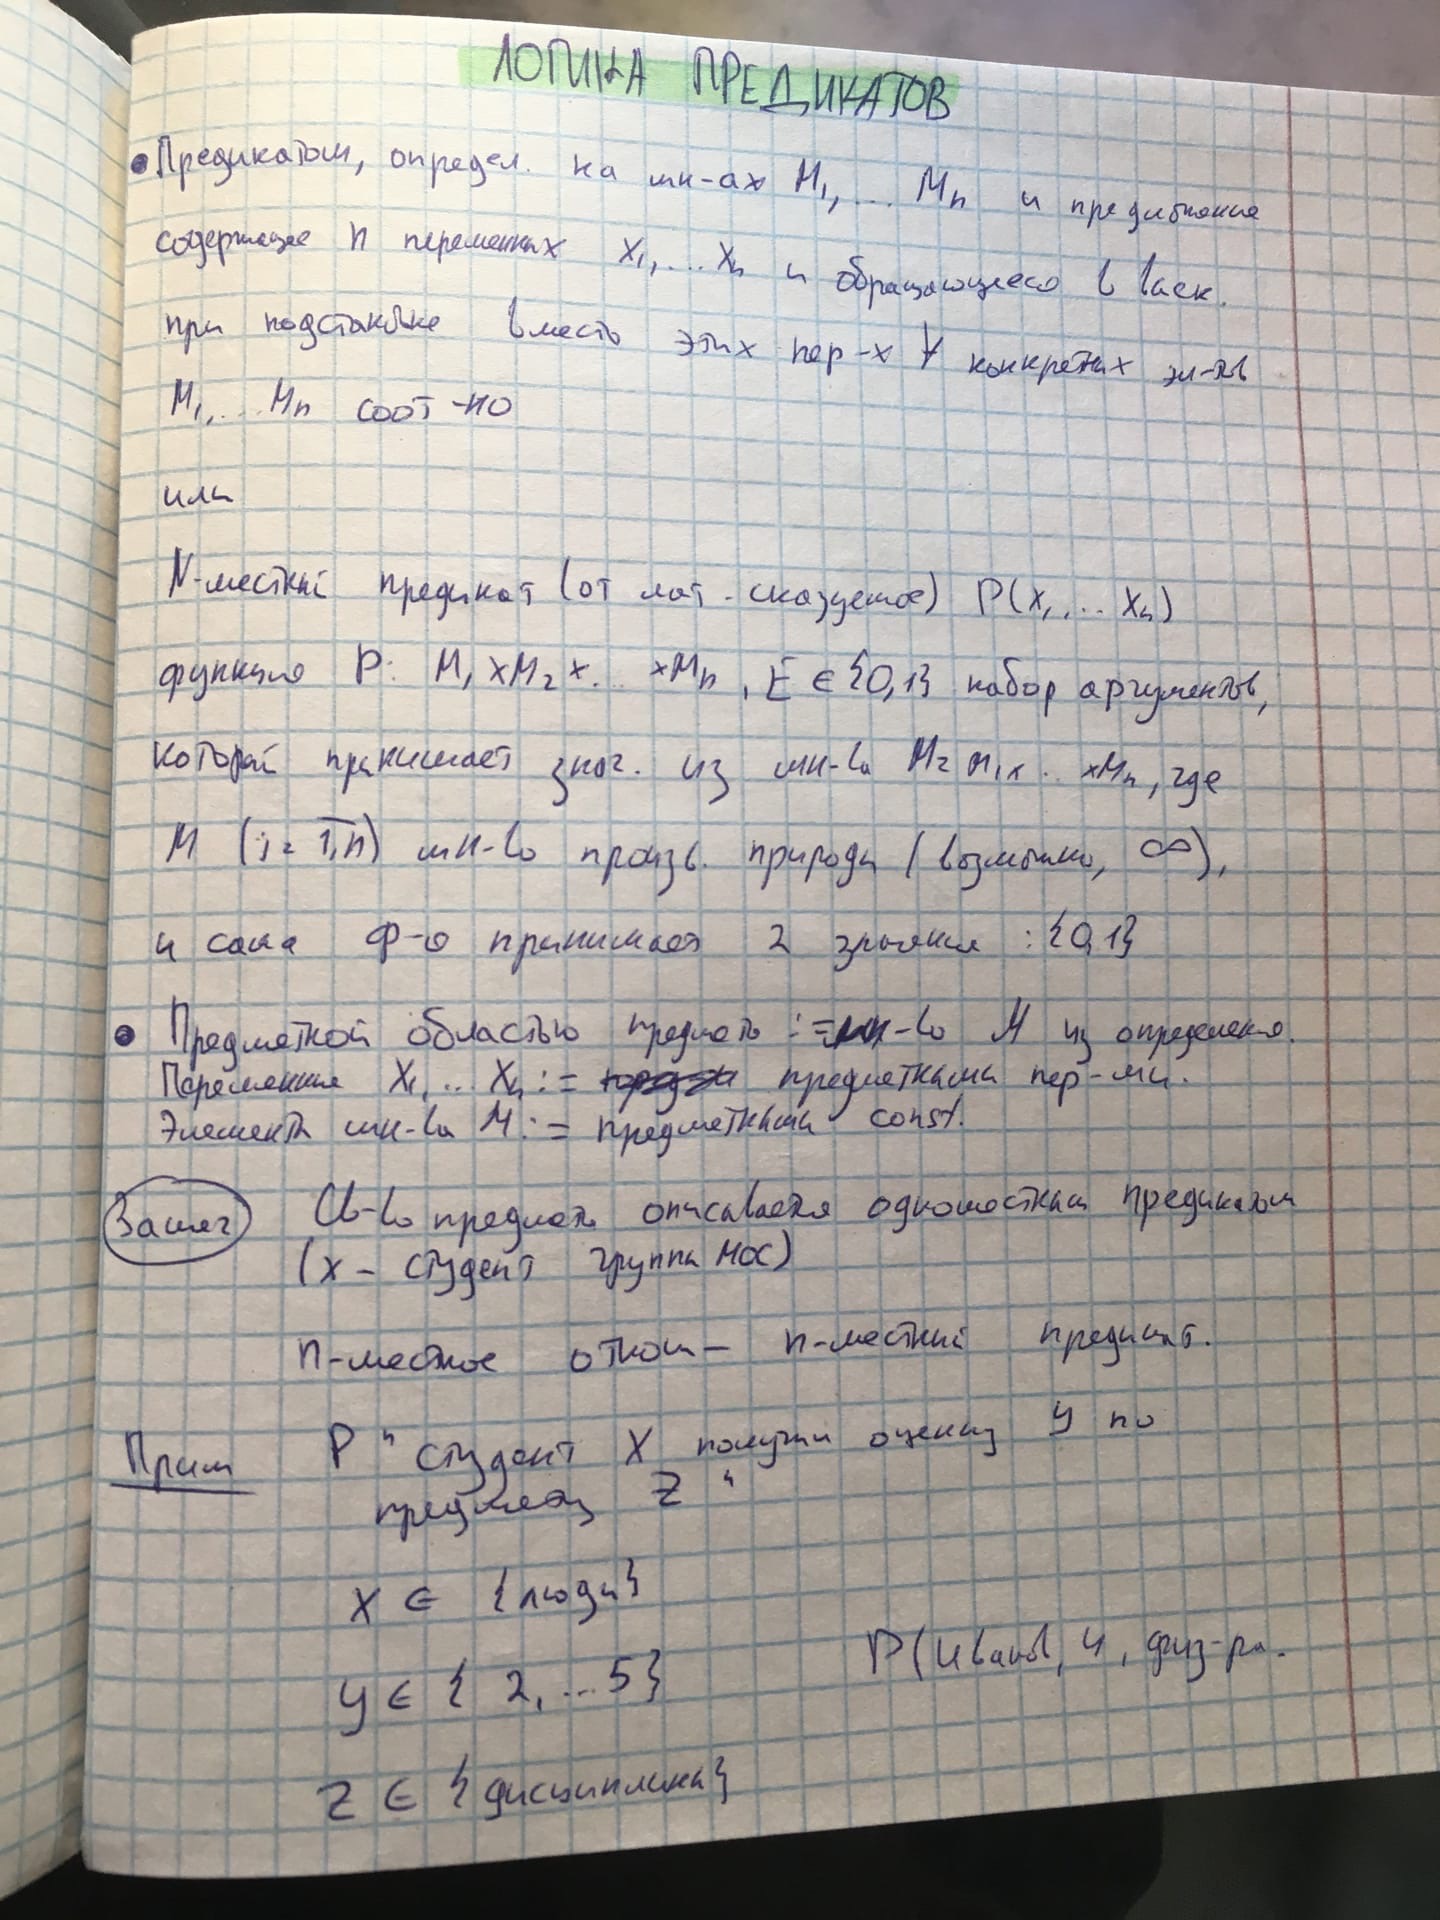 ЛОГИКА ПРЕДИКАТОВ
Предикатом, определ. на мн-ах M₁,... Mₙ и предложение
содержащее n переменных X₁,... Xₙ и обращающееся в выск.
при подстановке вместо этих пер-х ∀ конкретных эл-тов
M₁,... Mₙ соот-но
или
N-местный предикат (от лат. сказуемое) P(X₁,... Xₙ)
функция P: M₁×M₂×... ×Mₙ, E ∈ {0,1} набор аргументов,
который принимает знач. из мн-ва M= M₁×.. ×Mₙ, где
M (i= 1,n) мн-во произв. природы (возможно, ∞),
и сама ф-я принимает 2 значения : {0,1}
Предметной областью предмета := мн-во M из определения.
Переменные X₁,... Xₙ := предметными пер-ми.
Элементы мн-ва M := предметными const.
Замеч Св-во предмета описывается одноместным предикатом
(x – студент группы МОС)
n-местное отнош – n-местный предикат.
Прим P "студент X получил оценку Y по
предмету Z"
X ∈ {люди}
y ∈ { 2,...5}
P(Иванов, 4, физ-ра.
Z ∈ {дисциплины}